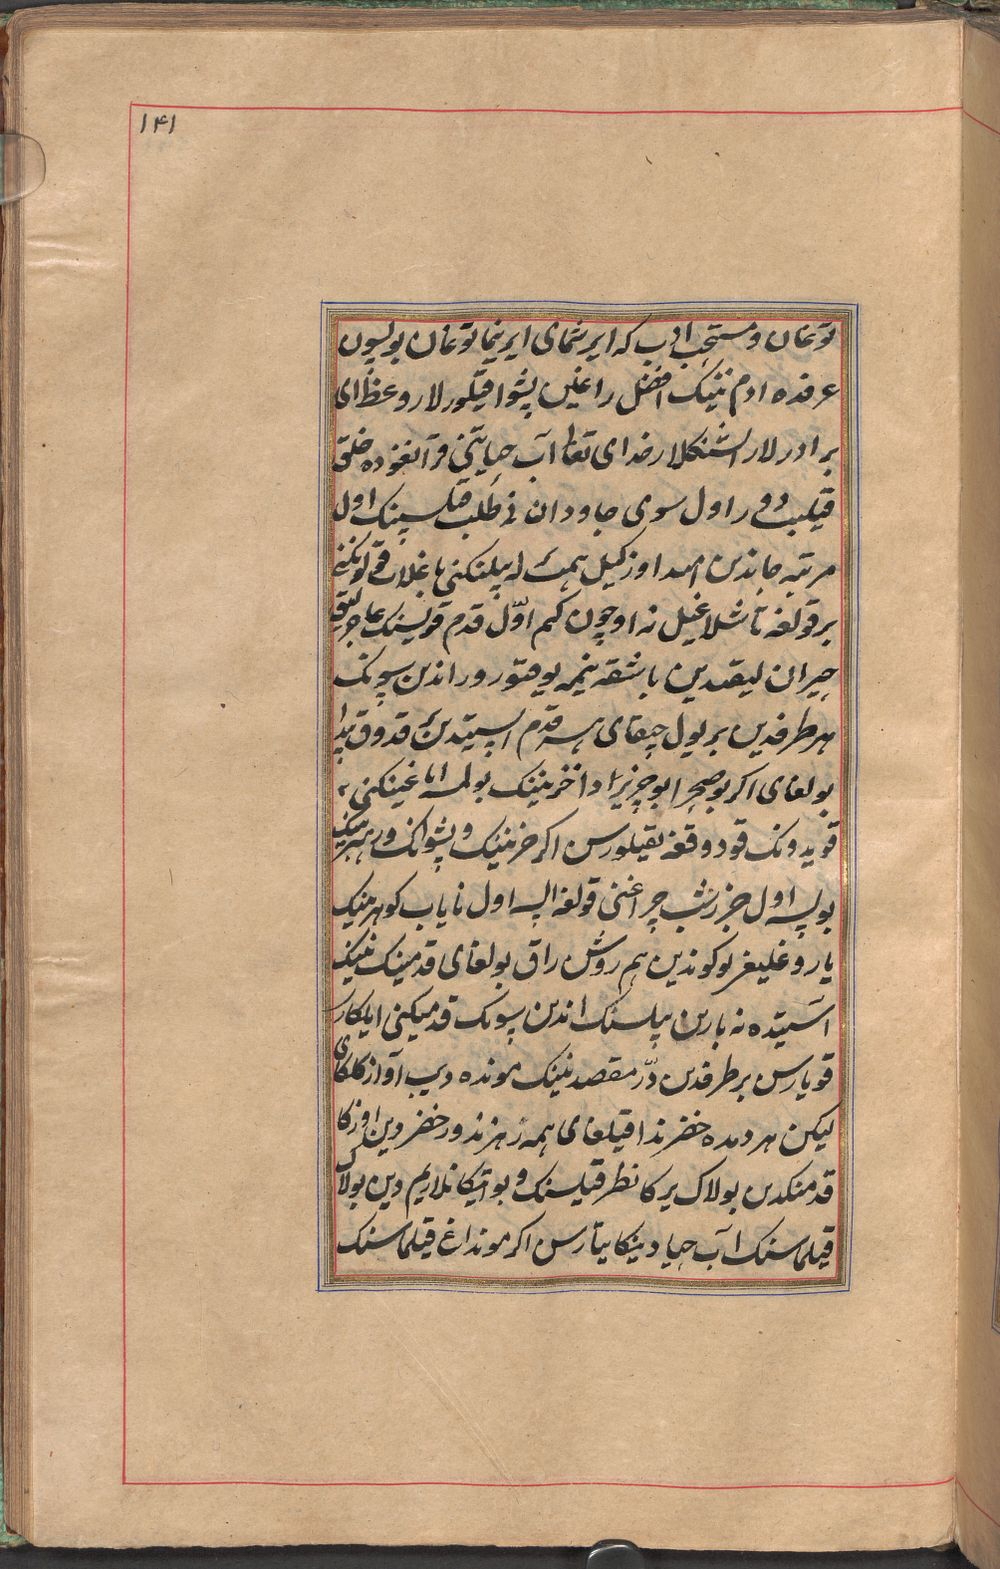 ۱۴۱
توغان و مستحب ادب که ایرشمای ایرنیما توغان بولسون
عرفده ادم نینک افضل راغین پشوا قیلورلار و عظ ای
برادرلار ایشتنکلار خدای تعالی آب حیاتنی قرآنغوده خلق
قیلیب دور اول سوی جاودان نی طلب قیلسنک اول
مرتبه جاندین اوزکیل همت له بیلنکنی باغلاب
برقولغه تاشلاغیل نه اوچون کیم اوّل قدم قویسنک عاجزلیق
حیران لیقدین باشقه نیمه یوقتور و راندین سونک
هر طرفدین بر یول چیقای هر قدم استیدین قدوق پیدا
بولغای اکر بو صحرا بو جزیرا دا خرنینک بولمه اناغینکنی
قویدونک قودوقغه یقیلورسن اکر خرنینک و پشوانک و رهبرینک
بولسه اول خرشب چراغنی قولغه الیب اول نایاب کوهرنینک
یاروغلیغی بو کوندین هم روشن راق بولغای قدمینک نینک
استیده نه بارین بیلسنک اندین سونک قدمینکنی ایلکاری
قویارسن بر طرفدین درّ مقصد نینک مونده دیب آواز کلکای
لیکن هر دمده خضر ندا قیلغای همه رهزندور خضر دین اوزکا
قدمنکدین بولاک یرکا نظر قیلسنک و بو اتیکانلاریم دین بولاک
قیلماسنک آب حیادینکا یتارسن اکر مونداغ قیلماسنک